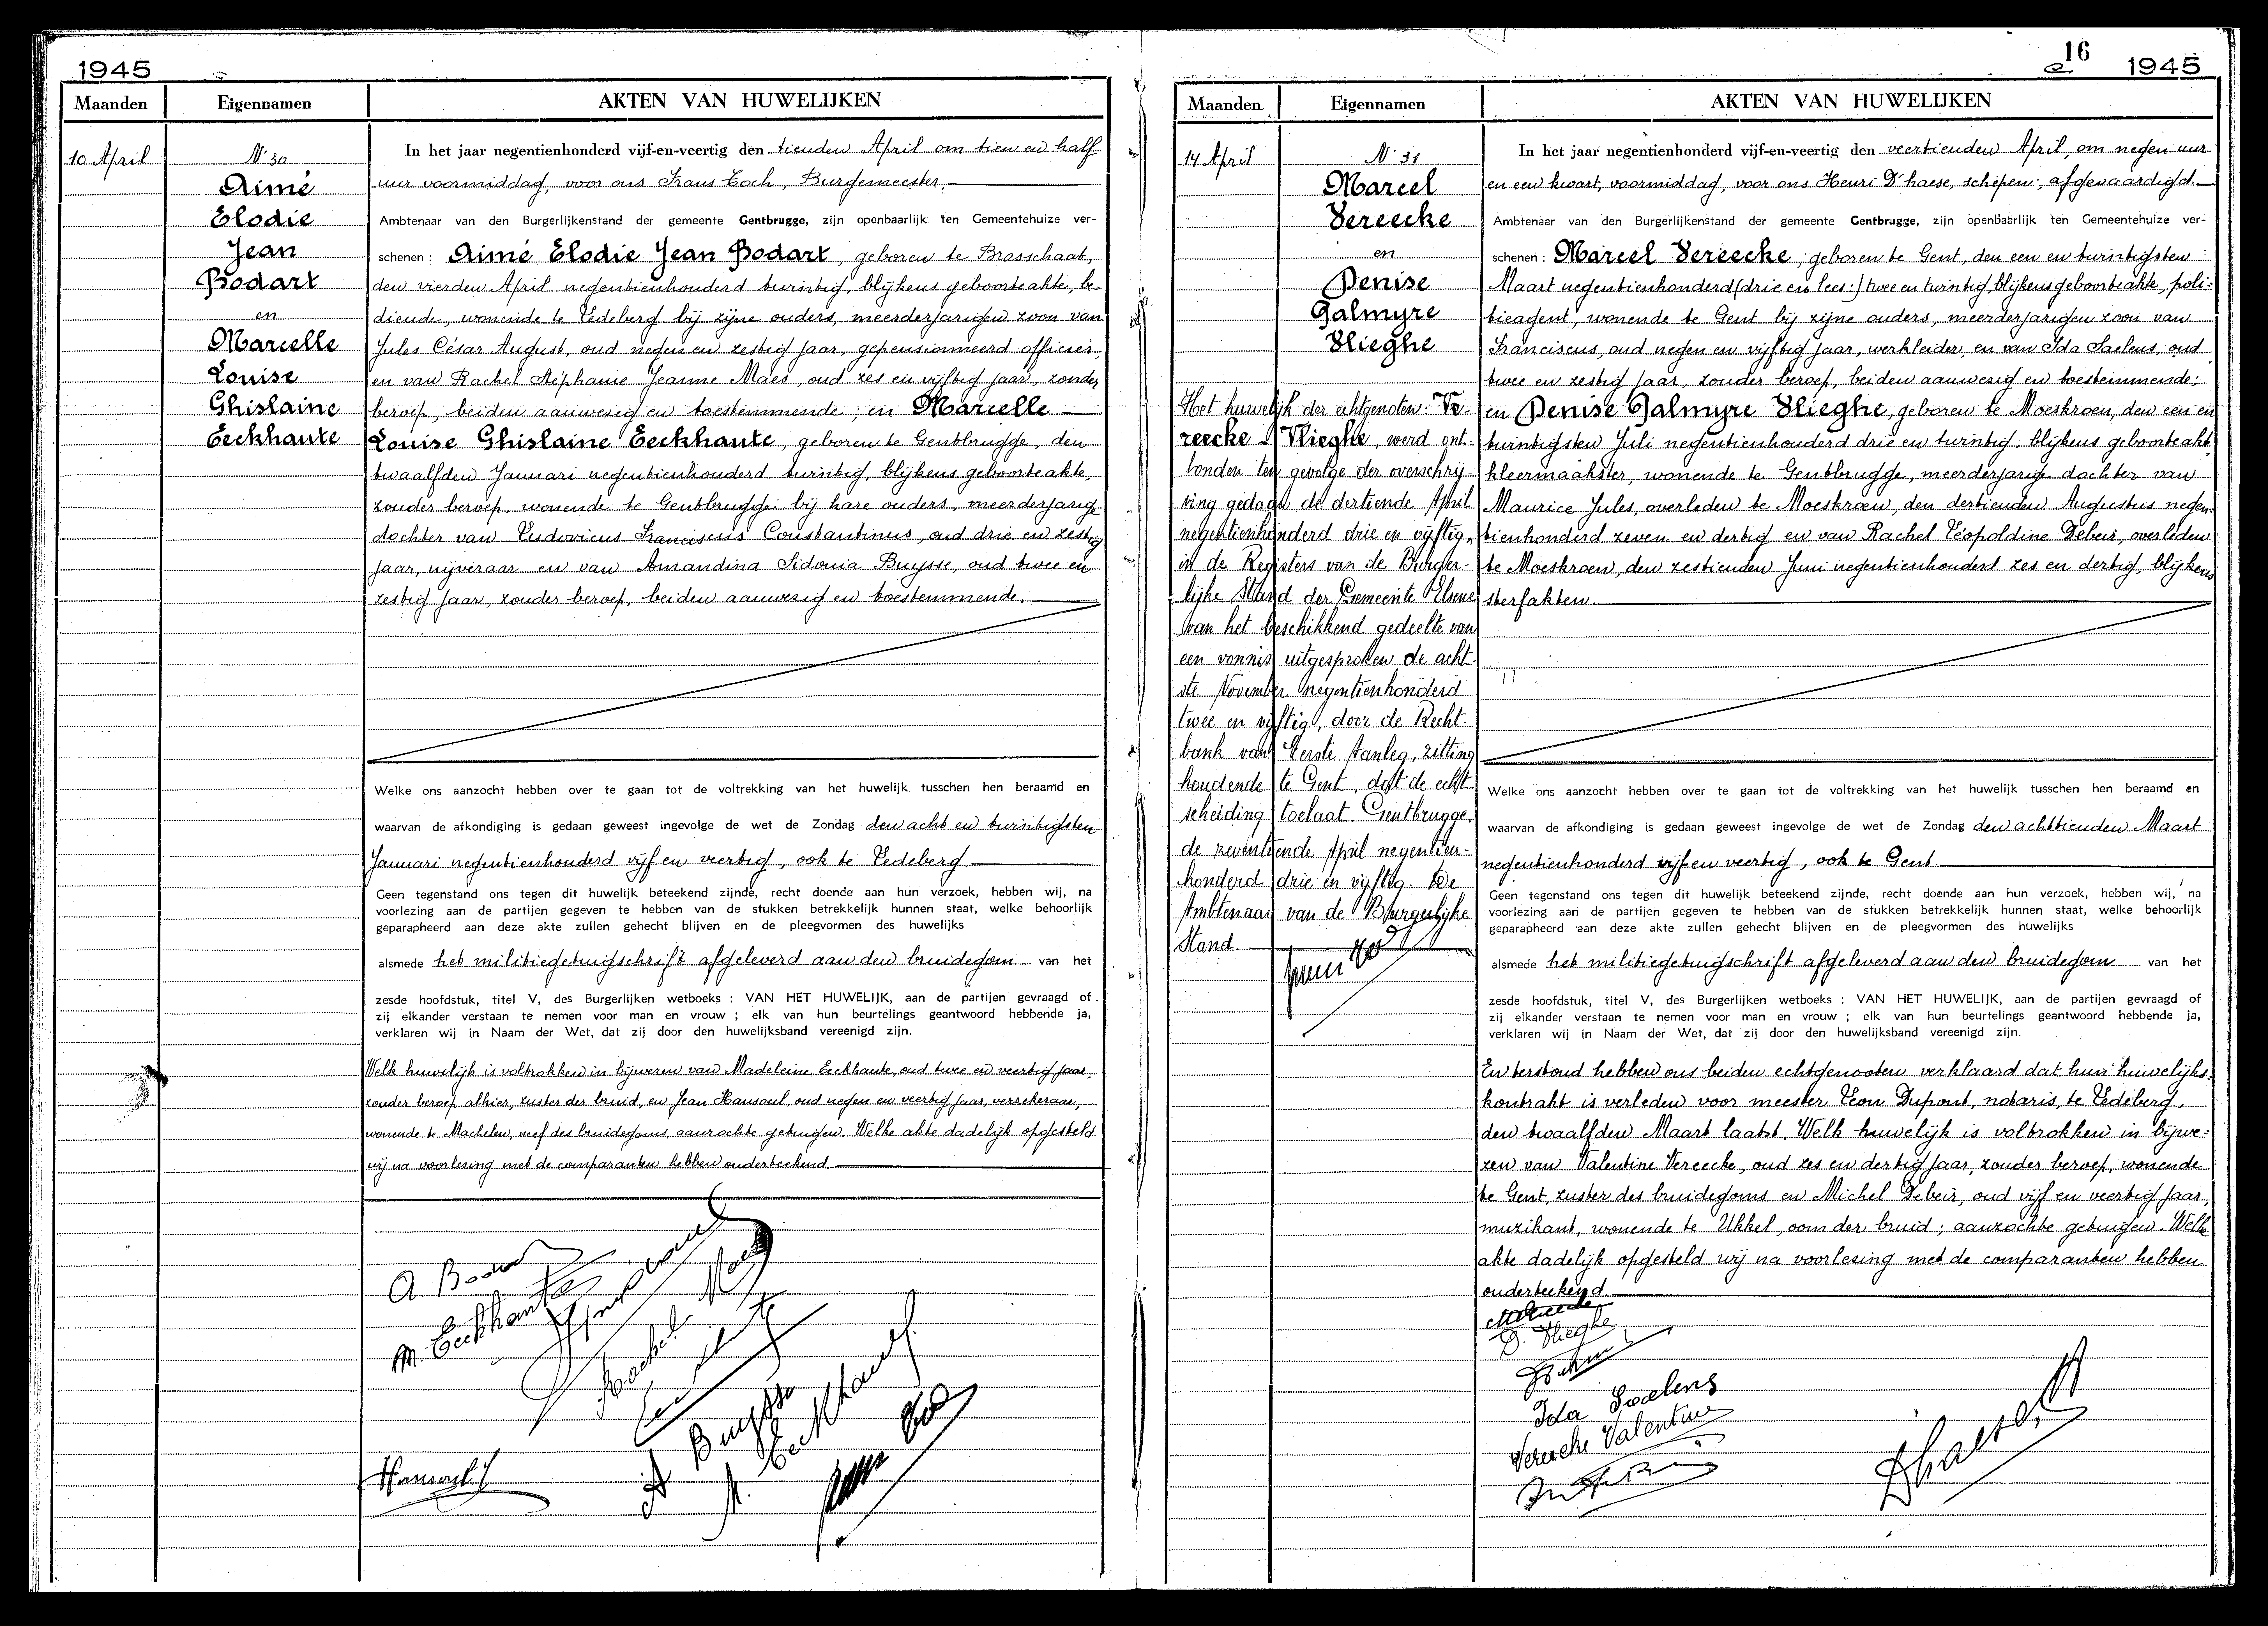 1945
Maanden
Eigennamen
AKTEN VAN HUWELIJKEN
10 April
N° 30
Aimé
Elodie
Jean
Bodart
en
Marcelle
Louise
Ghislaine
Eeckhaute
In het jaar negentienhonderd vijf-en-veertig den tienden April om tien en half
uur voormiddag, voor ons Frans Coch, Burgemeester,
Ambtenaar van den Burgerlijkenstand der gemeente Gentbrugge, zijn openbaarlijk ten Gemeentehuize ver-
schenen : Aimé Elodie Jean Bodart, geboren te Brasschaat,
den vierden April negentienhonderd twintig, blijkens geboorteakte, be-
diende, wonende te Ledeberg bij zijne ouders, meerderjarigen zoon van
Jules César August, oud negen en zestig jaar, gepensionneerd officier,
en van Rachel Stéphanie Jeanne Maes, oud zes en vijftig jaar, zonder
beroep, beiden aanwezig en toestemmende ; en Marcelle
Louise Ghislaine Eeckhaute, geboren te Gentbrugge, den
twaalfden Januari negentienhonderd twintig, blijkens geboorteakte,
zonder beroep, wonende te Gentbrugge bij hare ouders, meerderjarige
dochter van Ludovicus Franciscus Constantinus, oud drie en zestig
jaar, nijveraar en van Amandina Sidonia Buysse, oud twee en
zestig jaar, zonder beroep, beiden aanwezig en toestemmende.
Welke ons aanzocht hebben over te gaan tot de voltrekking van het huwelijk tusschen hen beraamd en
waarvan de afkondiging is gedaan geweest ingevolge de wet de Zondag den acht en twintigsten
Januari negentienhonderd vijf en veertig, ook te Ledeberg
Geen tegenstand ons tegen dit huwelijk beteekend zijnde, recht doende aan hun verzoek, hebben wij, na
voorlezing aan de partijen gegeven te hebben van de stukken betrekkelijk hunnen staat, welke behoorlijk
geparapheerd aan deze akte zullen gehecht blijven en de pleegvormen des huwelijks
alsmede het militiegetuigschrift afgeleverd aan den bruidegom van het
zesde hoofdstuk, titel V, des Burgerlijken wetboeks : VAN HET HUWELIJK, aan de partijen gevraagd of
zij elkander verstaan te nemen voor man en vrouw ; elk van hun beurtelings geantwoord hebbende ja,
verklaren wij in Naam der Wet, dat zij door den huwelijksband vereenigd zijn.
Welk huwelijk is voltrokken in bijwezen van Madeleine Eeckhaute, oud twee en veertig jaar,
zonder beroep alhier, zuster der bruid, en Jean Hansoul, oud negen en veertig jaar, verzekeraar,
wonende te Machelen, neef des bruidegoms, aanzochte getuigen. Welke akte dadelijk opgesteld
wij na voorlezing met de comparanten hebben onderteekend.
M. Eeckhaute
Rachel Maes
A Buysse
M. Eeckhaute
Hansoul J
16
1945
Maanden
Eigennamen
AKTEN VAN HUWELIJKEN
14 April
N° 31
Marcel
Vereecke
en
Denise
Palmyre
Vlieghe
Het huwelijk der echtgenoten: Ve-
reecke - Vlieghe, werd ont-
bonden ten gevolge der overschrij-
ving gedaan de dertiende April
negentienhonderd drie en vijftig,
in de Registers van de Burger-
lijke Stand der Gemeente Elsene
van het beschikkend gedeelte van
een vonnis uitgesproken de acht-
ste November negentienhonderd
twee en vijftig, door de Recht-
bank van Eerste Aanleg, zitting
houdende te Gent, dat de echt-
scheiding toelaat. Gentbrugge,
de zeventiende April negentien-
honderd drie en vijftig. De
Ambtenaar van de Burgerlijke
Stand.
In het jaar negentienhonderd vijf-en-veertig den veertienden April, om negen uur
en een kwart, voormiddag, voor ons Henri D'haese, schepen, afgevaardigd
Ambtenaar van den Burgerlijkenstand der gemeente Gentbrugge, zijn openbaarlijk ten Gemeentehuize ver-
schenen : Marcel Vereecke, geboren te Gent, den een en twintigsten
Maart negentienhonderd (drie en lees:) twee en twintig, blijkens geboorteakte, poli-
tieagent, wonende te Gent bij zijne ouders, meerderjarigen zoon van
Franciscus, oud negen en vijftig jaar, werkleider, en van Ida Saelens, oud
twee en zestig jaar, zonder beroep, beiden aanwezig en toestemmende;
en Denise Palmyre Vlieghe, geboren te Moeskroen, den een en
twintigsten Juli negentienhonderd drie en twintig, blijkens geboorteakte
kleermaakster, wonende te Gentbrugge, meerderjarige dochter van
Maurice Jules, overleden te Moeskroen, den dertienden Augustus negen-
tienhonderd zeven en dertig en van Rachel Léopoldine Debeir, overleden
te Moeskroen, den zestienden Juni negentienhonderd zes en dertig, blijkens
sterfakten.
Welke ons aanzocht hebben over te gaan tot de voltrekking van het huwelijk tusschen hen beraamd en
waarvan de afkondiging is gedaan geweest ingevolge de wet de Zondag den achttienden Maart
negentienhonderd vijf en veertig, ook te Gent.
Geen tegenstand ons tegen dit huwelijk beteekend zijnde, recht doende aan hun verzoek, hebben wij, na
voorlezing aan de partijen gegeven te hebben van de stukken betrekkelijk hunnen staat, welke behoorlijk
geparapheerd aan deze akte zullen gehecht blijven en de pleegvormen des huwelijks
alsmede het militiegetuigschrift afgeleverd aan den bruidegom van het
zesde hoofdstuk, titel V, des Burgerlijken wetboeks : VAN HET HUWELIJK, aan de partijen gevraagd of
zij elkander verstaan te nemen voor man en vrouw ; elk van hun beurtelings geantwoord hebbende ja,
verklaren wij in Naam der Wet, dat zij door den huwelijksband vereenigd zijn.
En terstond hebben ons beiden echtgenooten verklaard dat hun huwelijks-
kontrakt is verleden voor meester Leon Dupont, notaris, te Ledeberg,
den twaalfden Maart laatst. Welk huwelijk is voltrokken in bijwe-
zen van Valentine Vereecke, oud zes en dertig jaar, zonder beroep, wonende
te Gent, zuster des bruidegoms en Michel Debeir, oud vijf en veertig jaar,
muzikant, wonende te Ukkel, oom der bruid ; aanzochte getuigen. Welke
akte dadelijk opgesteld wij na voorlezing met de comparanten hebben
onderteekend.
D. Vlieghe
Ida Saelens
Vereecke Valentine